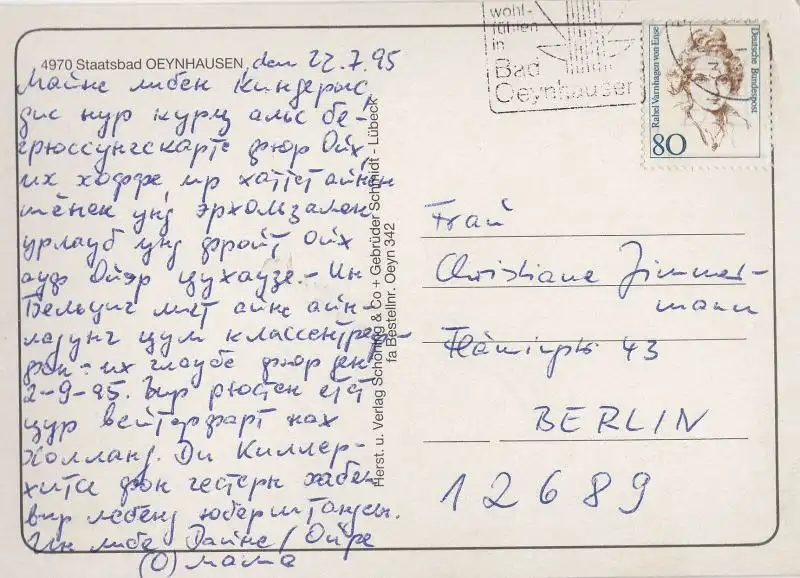 4970 Staatsbad OEYNHAUSEN, den 22.7.95
Майне либен Киндерлс,
дис нур курц альс бе-
грюссунгскарте фюр Ойх,
их хоффе, ир хаттет айнен
шёнен унд эрхользамен
урлауб унд фройт Ойх
ауф Ойэр цухаузе. - Ин
Бельциг лигт айне айн-
ладунг цум классентреф-
фен - их глаубе фюр ден
2-9-95. Вир рюстен етст
цур вейтерфарт нах
Холланд. Ди Киллер-
хитсе фон гестерн хабен
вир лебенд юберштанден.
Ин либе Дайне/Ойре
(О)мама
Herst. u. Verlag Schöning & Co + Gebrüder Schmidt - Lübeck
fa Bestellnr. Oeyn 342
wohl-
fühlen
in
Bad
Oeynhausen
Rahel Varnhagen von Ense
Deutsche Bundespost
80
Frau
Christiane Zimmer-
mann
43
BERLIN
12689